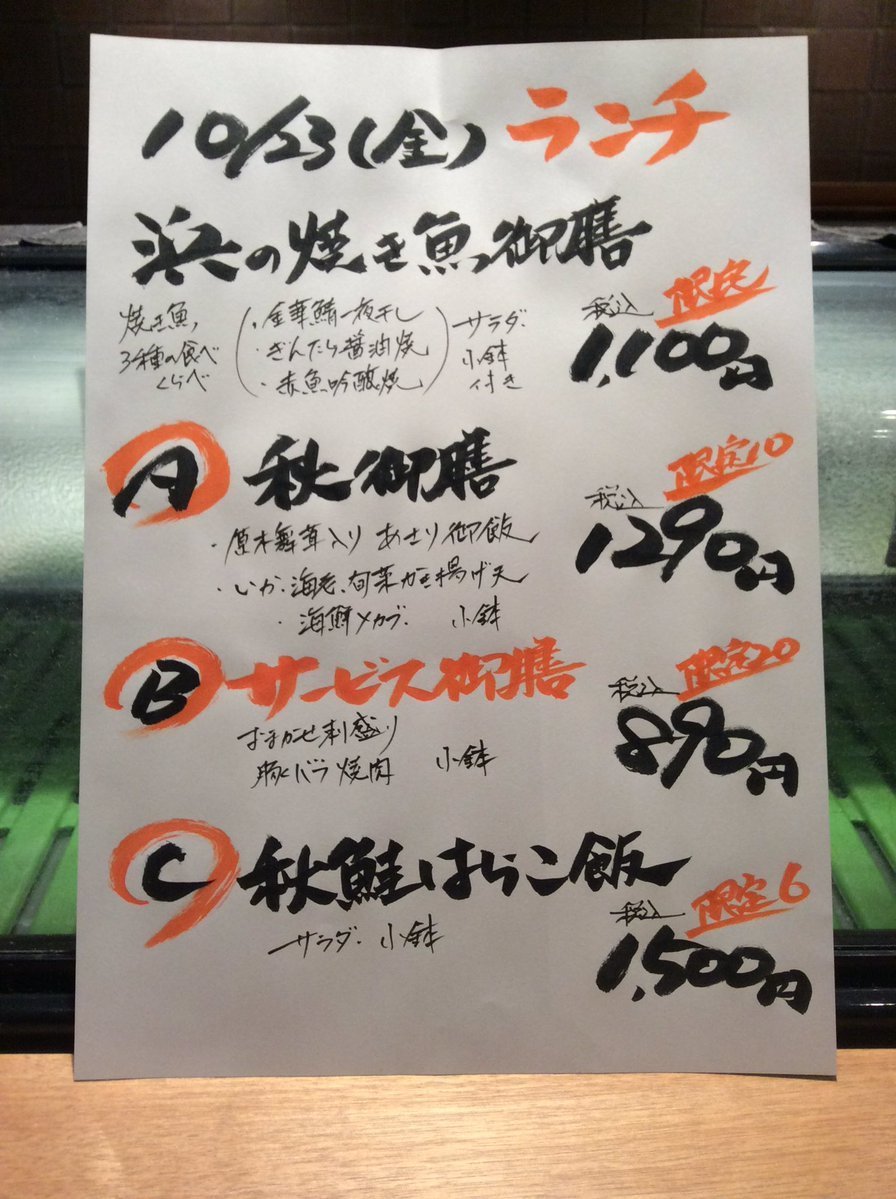 10/23(金) ランチ
浜の焼き魚御膳
焼き魚
3種の食べ
くらべ
・金華鯖一夜干し
・ぎんたら醤油焼
・赤魚吟醸焼
サラダ
小鉢
付き
限定
税込
1,100円
A 秋御膳
・原木舞茸入り あさり御飯
・いか、海老、旬菜かき揚げ天
・海鮮メカブ 小鉢
限定10
税込
1290円
B サービス御膳
おまかせ刺盛り
豚バラ焼肉 小鉢
限定20
税込
890円
C 秋鮭はらこ飯
サラダ・小鉢
限定6
税込
1,500円